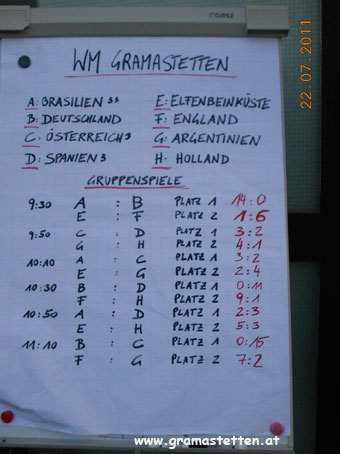 WM GRAMASTETTEN
A: BRASILIEN 33 E: ELFENBEINKÜSTE
B: DEUTSCHLAND F: ENGLAND
C: ÖSTERREICH 3 G: ARGENTINIEN
D: SPANIEN 3 H: HOLLAND
GRUPPENSPIELE
9:30 A : B PLATZ 1 14:0
E : F PLATZ 2 1:6
9:50 C : D PLATZ 1 3:2
G : H PLATZ 2 4:1
10:10 A : C PLATZ 1 3:2
E : G PLATZ 2 2:4
10:30 B : D PLATZ 1 0:11
F : H PLATZ 2 9:1
10:50 A : D PLATZ 1 2:3
E : H PLATZ 2 5:3
11:10 B : C PLATZ 1 0:15
F : G PLATZ 2 7:2
22.07.2011
www.gramastetten.at